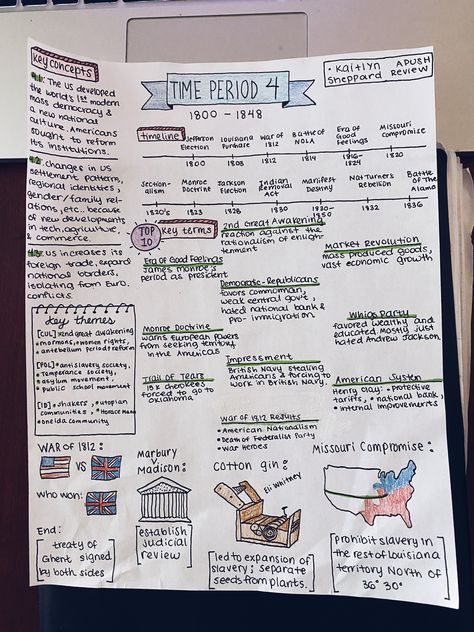 Key concepts
4.1: The US developed
the world's 1st modern
mass democracy &
a new national
culture. Americans
sought to reform
its institutions.
4.2: changes in US
settlement patterns,
regional identities,
gender/family rel-
ations, etc.. because
of new developments
in tech, agriculture,
& commerce.
4.3: US increases its
foreign trade, expand
national borders,
isolating from Euro.
conflicts.
TIME PERIOD 4
1800 - 1848
• Kaitlyn APUSH
Sheppard Review
timeline
Jefferson Election
Louisiana Purchase
War of 1812
Battle of NOLA
Era of Good Feelings
Missouri Compromise
1800
1803
1812
1814
1816-1824
1820
Section-alism
Monroe Doctrine
Jackson Election
Indian Removal Act
Manifest Destiny
Nat Turner's Rebellion
Battle of The Alamo
1820's
1823
1828
1830
1830-1850
1832
1836
TOP 10
Key terms
Era of Good Feelings
James Monroe's
period as president
2nd Great Awakening
reaction against the
rationalism of enligh-
tenment
Market Revolution
mass produced goods,
vast economic growth
Democratic-Republicans
favors common man,
weak central govt,
hated national bank &
pro-immigration
Monroe Doctrine
warns European powers
from seeking territory
in the Americas
Whigs Party
favored wealthy and
educated. Mostly just
hated Andrew Jackson.
Impressment
British Navy stealing
Americans & forcing to
work in British Navy.
Trail of Tears
15k cherokees
forced to go to
oklahoma
American System
Henry Clay: • protective
tariffs, • national bank,
• internal improvements
War of 1812 Results
• American Nationalism
• Death of Federalist Party
• War Heroes
key themes
[CUL] • 2nd great awakening
• mormons, • women rights,
• antebellum period+reform
[POL] • antislavery society,
• Temperance society,
• asylum movement,
• public school movement
[ID] • shakers, • utopian
communities, • Horace Mann
oneida community
WAR OF 1812:
VS
Who won:
End:
treaty of
Ghent signed
by both sides
Marbury
v
Madison:
establish
judicial
review
Cotton gin:
Eli Whitney
led to expansion of
slavery; separate
seeds from plants.
Missouri Compromise:
prohibit slavery in
the rest of Louisiana
territory North of
36° 30°